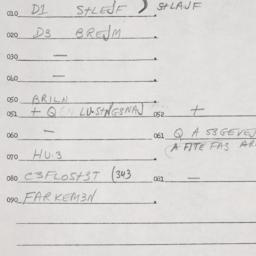 010 D1 S+LEJF ) S+LAJF
020 D3 BREJM
030 —
040 —
050 BRILN
051 + Q LU-S+NG3NAJ 052 +
060 — 061 Q A S3GEVEJ
(A FITE FA3 AR
070 HU-3
080 C3FLOS+3T (343 081 —
090 FARKEM3N